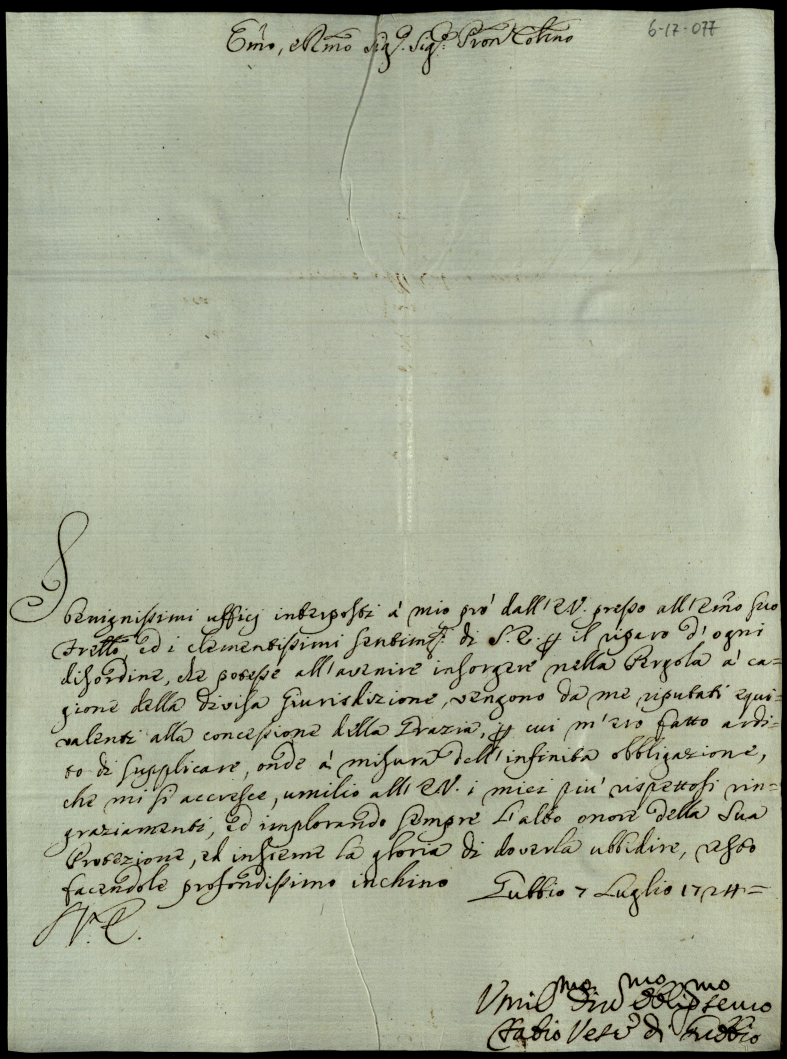 Emo, e Rmo Sig.r Sig.r Pron Colmo
6-17-077
I
benignissimi ufficj interposti à mio prò dall'E.V. presso all'Emo suo
Fretto, ed i clementissimi sentim.ti di S.E. p il riparo d'ogni
disordine, che potesse all'avenire insorgere nella Pergola à ca=
gione della divisa Giurisdizione, vengono da me riputati equi=
valenti alla concessione della Grazia, p cui m'ero fatto ardi=
to di supplicare, onde à misura dell'infinita obbligazione,
che mi si accresce, umilio all'E.V. i miei più rispettosi rin=
graziamenti, ed implorando sempre l'alto onore della Sua
Protezione, ed insieme la gloria di doverla ubbidire, resto
facendole profondissimo inchino
Gubbio 7 Luglio 1724=
V.E.
Umil.mo Div.mo Obblig.mo servo
Fabio Vesc.o di Gubbio